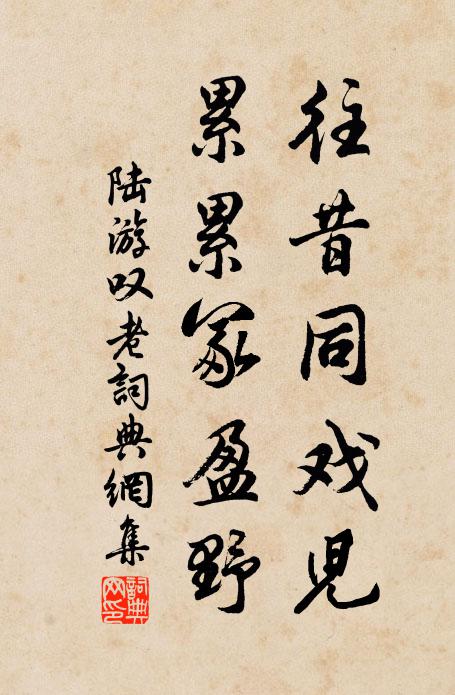 往昔同戏児
累累冢盈野
陆游叹老詞典網集
詞典网印